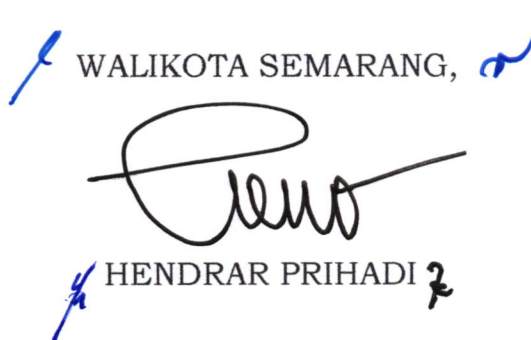 WALIKOTA SEMARANG,
HENDRAR PRIHADI